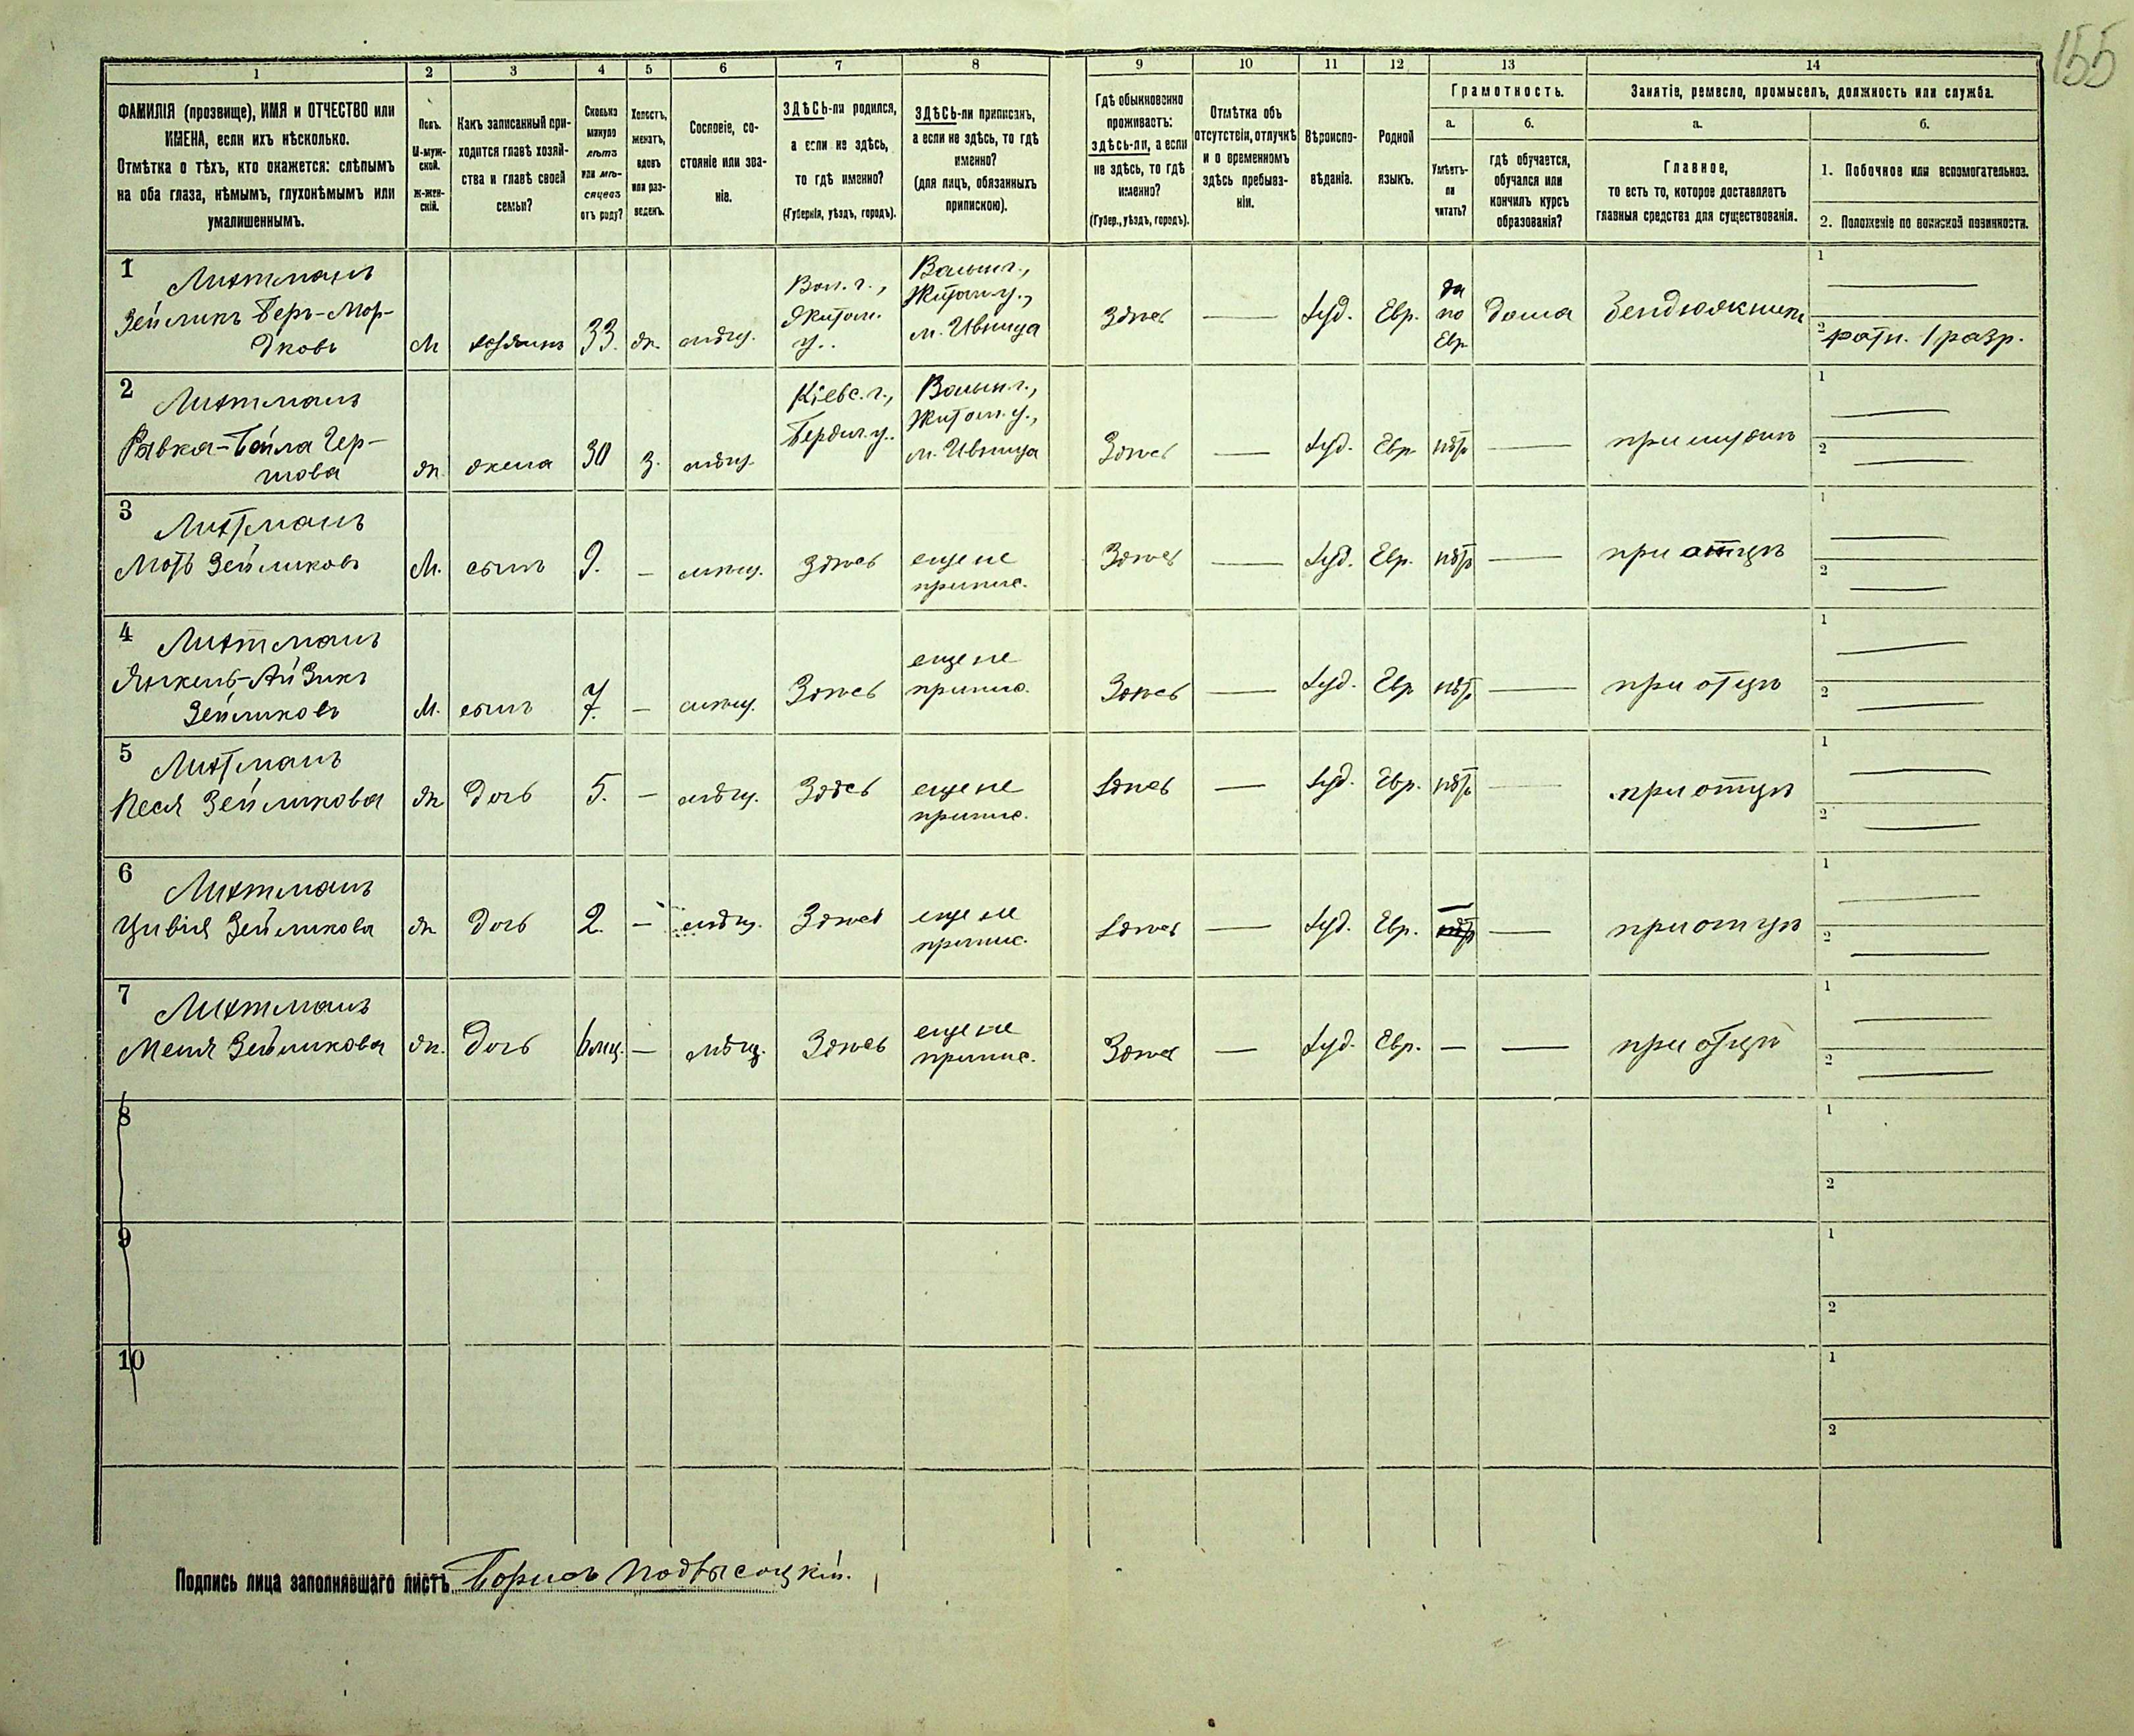 155
1 2 3 4 5 6 7 8 9 10 11 12 13 14
ФАМИЛІЯ (прозвище), ИМЯ и ОТЧЕСТВО или
ИМЕНА, если ихъ нѣсколько.
Отмѣтка о тѣхъ, кто окажется: слѣпымъ
на оба глаза, нѣмымъ, глухонѣмымъ или
умалишеннымъ.
Полъ.
М-муж-
ской.
Ж-жен-
скій.
Какъ записанный при-
ходится главѣ хозяй-
ства и главѣ своей
семьи?
Сколько
минуло
лѣтъ
или мѣ-
сяцевъ
отъ роду?
Холостъ,
женатъ,
вдовъ
или раз-
веденъ.
Сословіе, со-
стояніе или зва-
ніе.
ЗДѢСЬ-ли родился,
а если не здѣсь,
то гдѣ именно?
(Губернія, уѣздъ, городъ).
ЗДѢСЬ-ли приписанъ,
а если не здѣсь, то гдѣ
именно?
(для лицъ, обязанныхъ
припискою).
Гдѣ обыкновенно
проживаетъ:
здѣсь-ли, а если
не здѣсь, то гдѣ
именно?
(Губер., уѣздъ, городъ).
Отмѣтка объ
отсутствіи, отлучкѣ
и о временномъ
здѣсь пребыва-
ніи.
Вѣроиспо-
вѣданіе.
Родной
языкъ.
Грамотность.
а.
Умѣетъ-
ли
читать?
б.
гдѣ обучается,
обучался или
кончилъ курсъ
образованія?
Занятіе, ремесло, промыселъ, должность или служба.
а.
Главное,
то есть то, которое доставляетъ
главныя средства для существованія.
б.
1. Побочное или вспомогательное.
2. Положеніе по воинской повинности.
1
Лихтманъ
Зейликъ Беръ-Мор-
дковъ
М хозяинъ 33. ж. мѣщ.
Вол. г.,
Житом.
у.
Волын. г.,
Житом. у.,
м. Ивница
Здѣсь — Іуд. Евр.
да
по
Евр.
дома
1 —
2 Ратн. 1 разр.
2
Лихтманъ
Ривка-Бейла Гер-
шова
ж. жена 30 з. мѣщ.
Кіевс. г.,
Бердич. у.
Волын. г.,
Житом. у.,
м. Ивница
Здѣсь — Іуд. Евр. нѣтъ — при мужѣ
1 —
2 —
3
Лихтманъ
Мотъ Зейликовъ
М. сынъ 9. — мѣщ. Здѣсь
еще не
припис.
Здѣсь — Іуд. Евр. нѣтъ — при отцѣ
1 —
2 —
4
Лихтманъ
Янкель-Айзикъ
Зейликовъ
М. сынъ 7. — мѣщ. Здѣсь
еще не
припис.
Здѣсь — Іуд. Евр нѣтъ — при отцѣ
1 —
2 —
5
Лихтманъ
Песя Зейликова
ж дочь 5. — мѣщ. Здѣсь
еще не
припис.
Здѣсь — Іуд. Евр. нѣтъ — при отцѣ
1 —
2 —
6
Лихтманъ
Цивія Зейликова
ж дочь 2. — мѣщ. Здѣсь
еще не
припис.
Здѣсь — Іуд. Евр. — — при отцѣ
1 —
2 —
7
Лихтманъ
Меня Зейликова
ж. дочь 6 мц. — мѣщ. Здѣсь
еще не
припис.
Здѣсь — Іуд. Евр. — — при отцѣ
1 —
2 —
8
1
2
9
1
2
10
1
2
Подпись лица заполнявшаго листъ Борисъ Подвысоцкій.